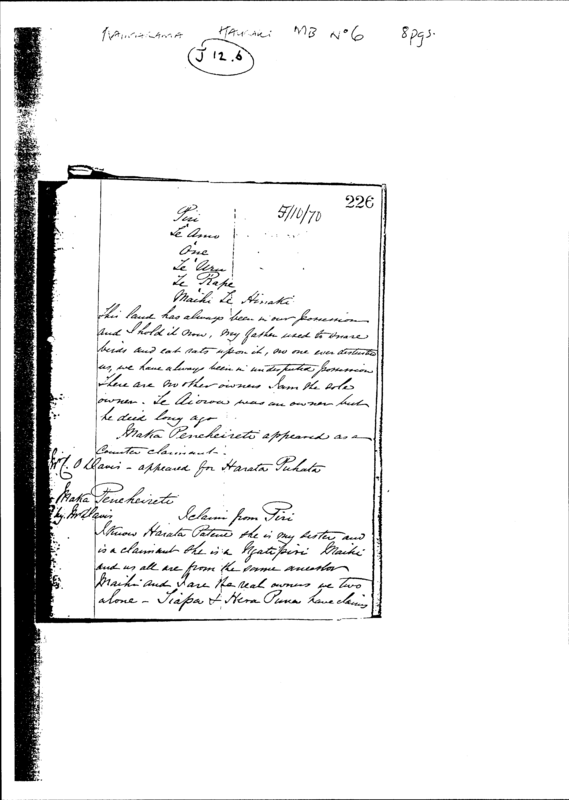 HAURAKI MB No 6 8pgs.
J 12.6
226
5/10/70
Piri
Te Amo
One
Te Uru
Te Rape
Maihi Te Hinaki
This land has always been in our possession
and I hold it now, my father used to snare
birds and eat rats upon it, no one ever disturbed
us, we have always been in undisputed possession
There are no other owners I am the sole
owner. Te Aiorou was an owner but
he died long ago
Maka Pencheireti appeared as a
Counter claimant.
C. O Davis - appeared for Harata Puhata
Maka Pencheireti
by Mr Davis I claim from Piri
I know Harata Patene she is my sister and
is a claimant she is a Ngatipiri Maihi
and us all are from the same ancestor
Maihi and I are the real owners we two
alone - Tiapa & Hera Puna have claims